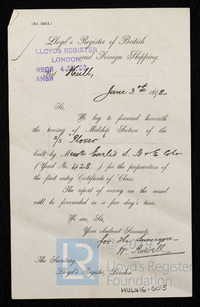 (No. 2212.)
Lloyd's Register of British
and Foreign Shipping.
LLOYDS REGISTER
LONDON
RECD
ANSD
Port Hull,
June 3rd 1898.
Sir,
We beg to forward herewith
the tracing of Midship Section of the
S/S "Plover"
built by Messrs Earle's S. B & E Co Ld
(Yard No. 428) for the preparation of
the first entry Certificate of Class.
The report of survey on the vessel
will be forwarded in a few day's time.
We are, Sir,
Your obedient Servants,
for the Surveyors
The Secretary,
Lloyd's Register, London
Lloyd's Register
Foundation
HUL416-0015